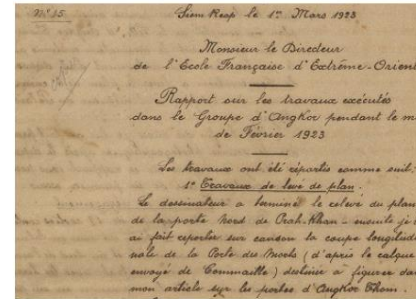 N° 35
Siem Reap le 1er Mars 1923
Monsieur le Directeur
de l'Ecole Française d'Extrême-Orient
Rapport sur les travaux exécutés
dans le Groupe d'Angkor pendant le m
de Février 1923
Les travaux ont été répartis comme suit:
1° Travaux de levé de plan.
Le dessinateur a terminé le relevé du plan
de la porte Nord de Prah-Khan - ensuite je l
ai fait reporter sur canson la coupe longitudi
nale de la Porte des Morts (d'après le calque
envoyé de Commaille) destinée à figurer dan
mon article sur les portes d'Angkor Thom.